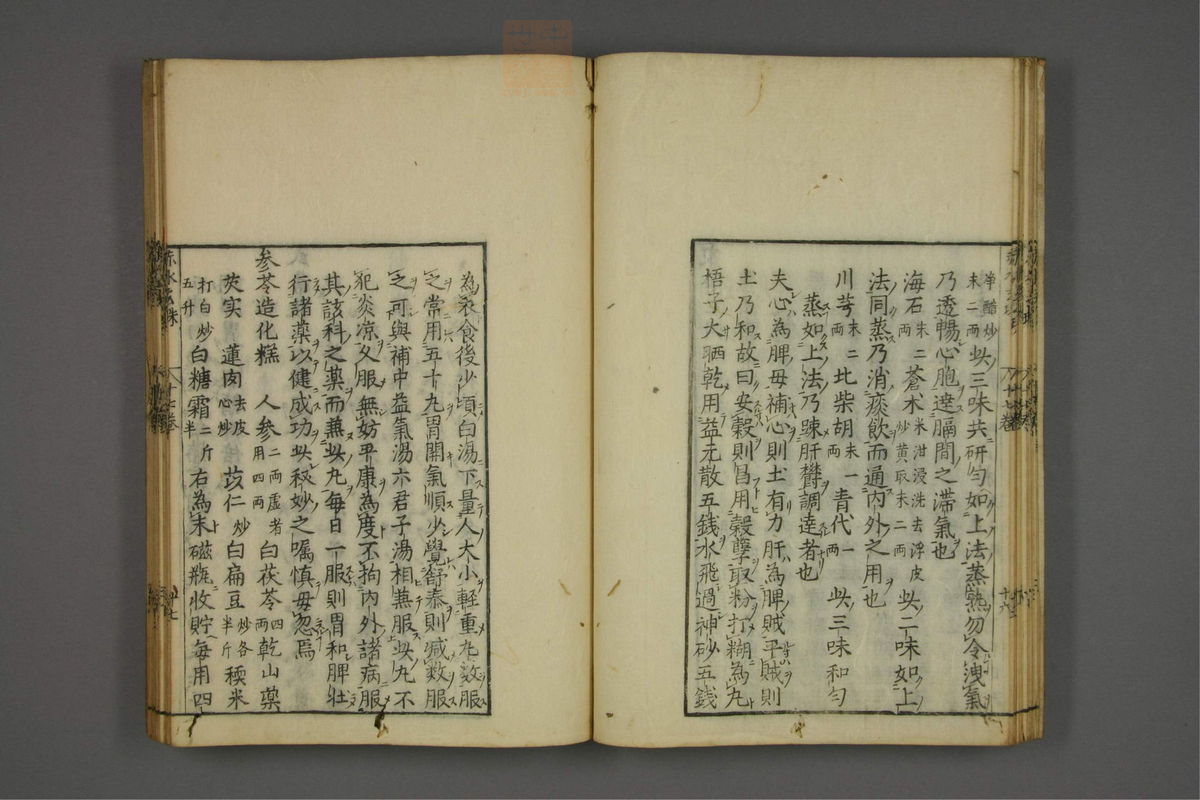 末二両 此三味共研勻如上法蒸熟勿令洩氣
乃透暢心胞達膈間之滞氣也
海石末二両 蒼术米泔浸洗去浮皮炒黄取末二両 此二味如上
法同蒸乃消痰飲而通内外之用也
川芎末二両 北柴胡末一両 青代一両 此三味和勻
蒸如上法乃踈肝欝調達者也
夫心為脾母補心則土有力肝為脾賊平賊則
土乃和故曰安穀則昌用穀孽取粉打糊為丸
梧子大晒乾用益元散五銭水飛過神砂五銭
為衣食後少頃白湯下量人大小軽重丸数服
之常用五十丸胃開氣順少覺舒泰則减数服
之可與補中益氣湯六君子湯相兼服此丸不
犯炎凉久服無妨平康為度不拘内外諸病服
其該科之薬而兼此丸毎日一服則胃和脾壮
行諸薬以健成功此秘妙之嘱慎毋忽焉
参苓造化糕 人参二両虚者用四両 白茯苓四両 乾山薬
芡実 蓮肉去皮心炒 苡仁炒 白扁豆炒各半斤 稬米
打白炒五升 白糖霜二斤半 右為末磁瓶收貯毎用四
赤水玄珠
十七巻